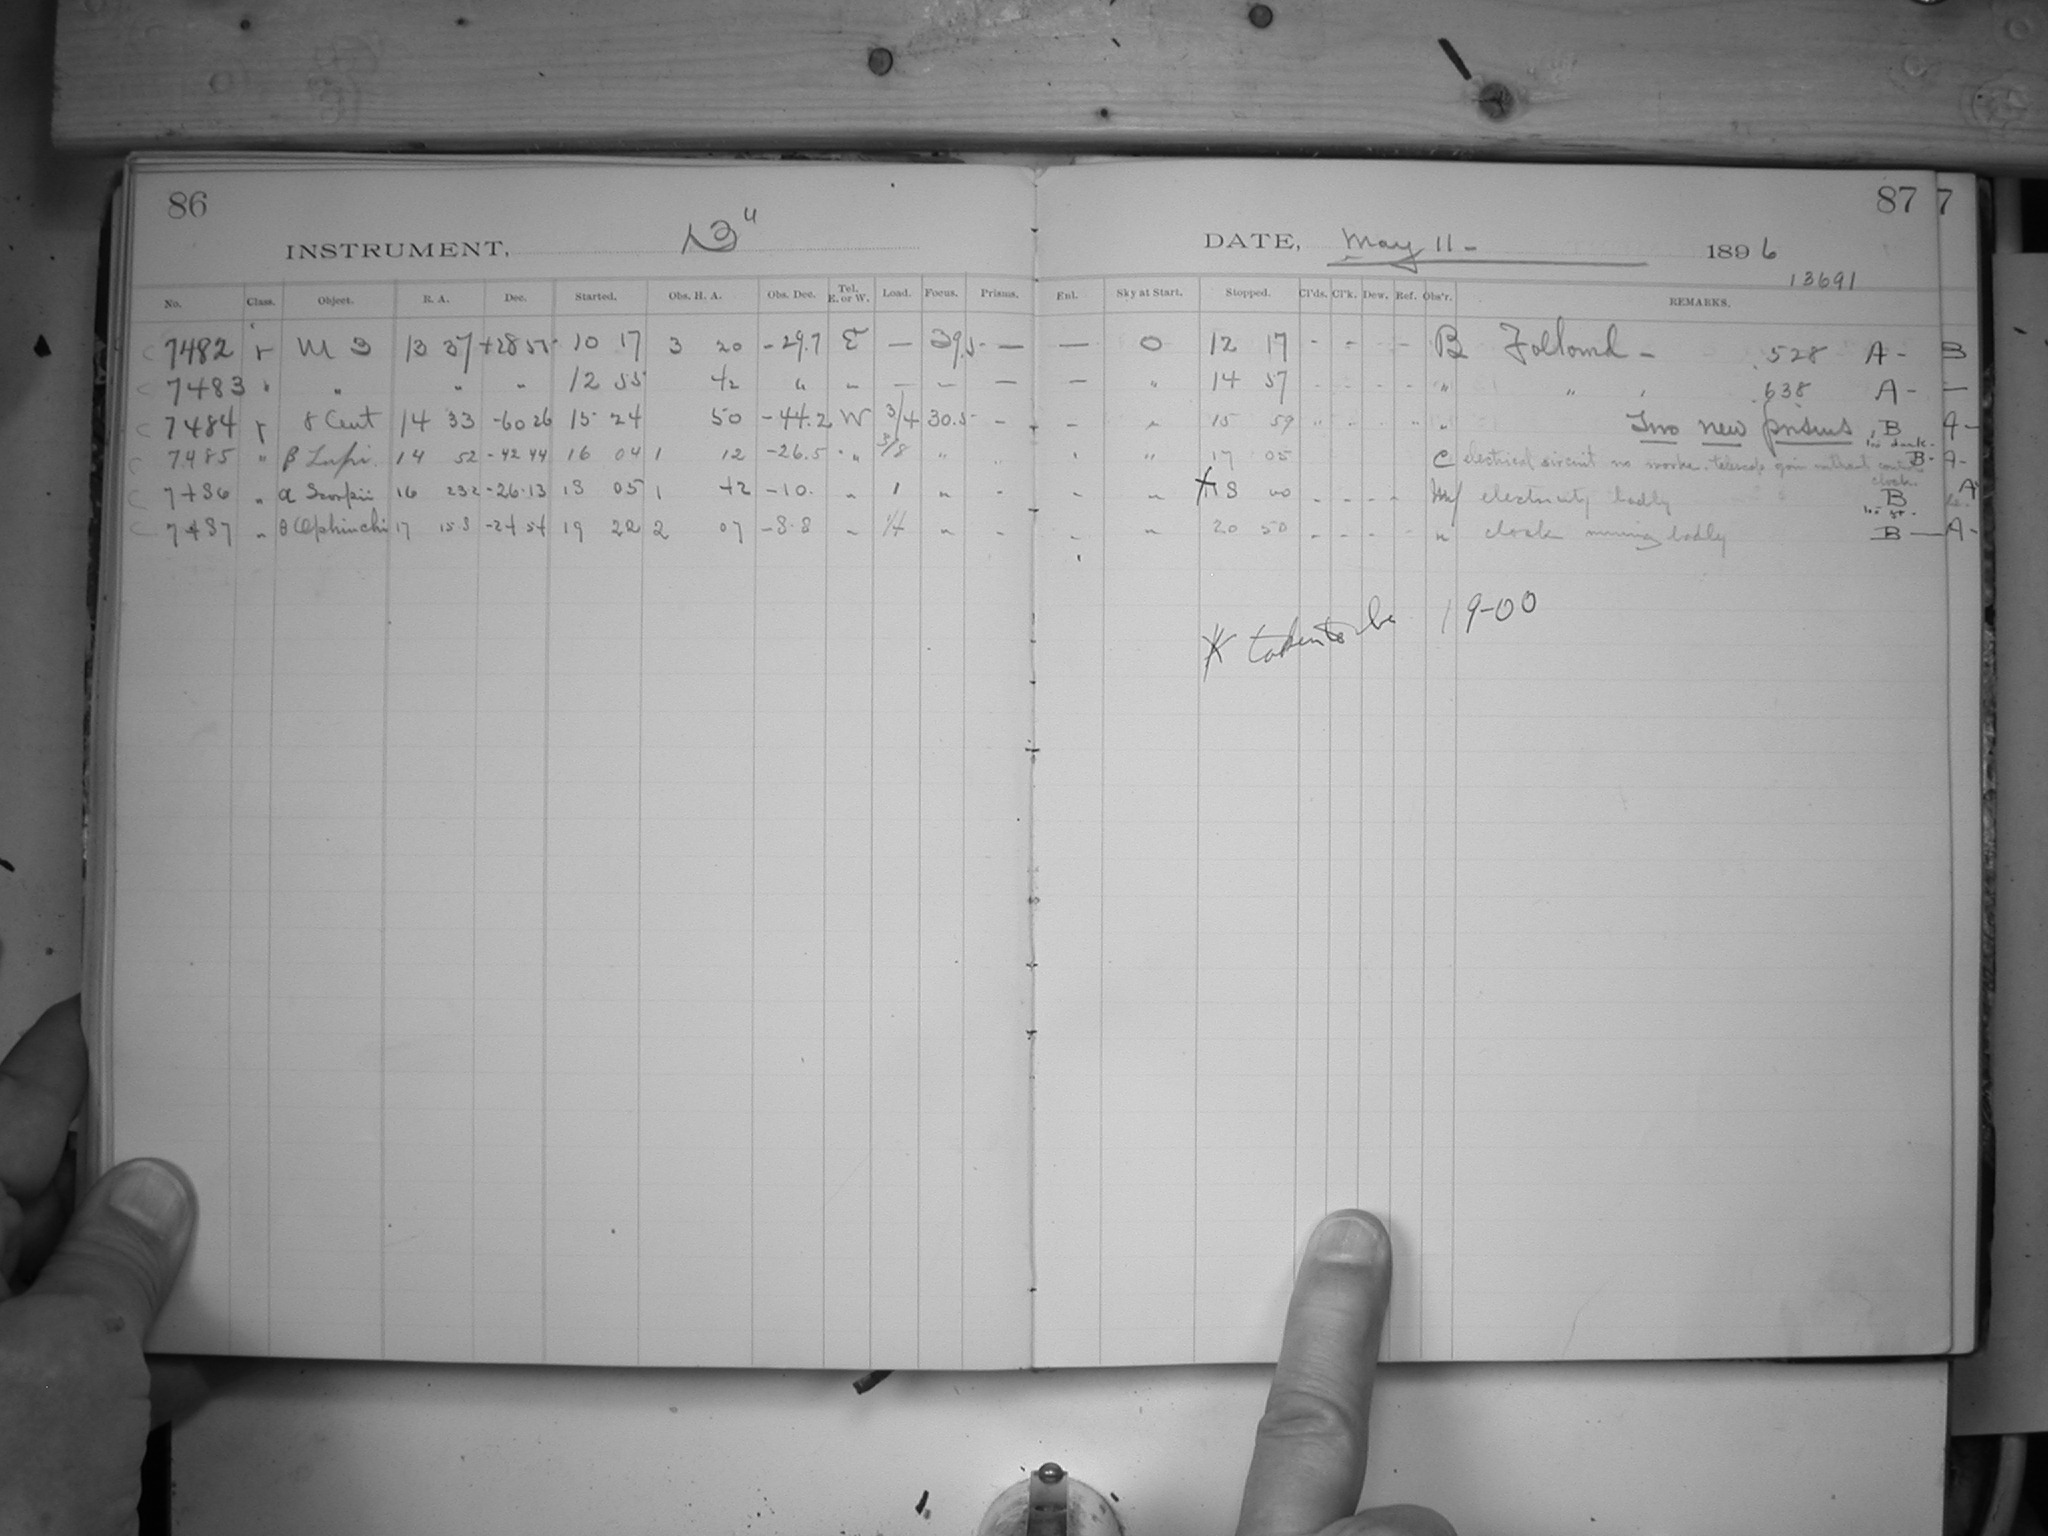 86
87 7
INSTRUMENT, 13"
DATE, May 11 - 1896
13691
No. Class. Object. R. A. Dec. Started. Obs. H. A. Obs. Dec. Tel. E. or W. Load. Focus. Prisms. Enl. Sky at Start. Stopped. Cl'ds. Cl'k. Dew. Ref. Obs'r. REMARKS.
C 7482 r M 3 13 37 +28 55 10 17 3 20 -29.7 E — 39.5 — — 0 12 17 - - - B Follow'd - 528 A - B
C 7483 " " " " 12 55 42 " " — — — — " 14 57 - - - - " " 638 A - —
C 7484 r γ Cent 14 33 -60 26 15 24 50 -44.2 W 3/4 30.5 - - " 15 59 " " " " " Two new prisms B A -
too dark -
C 7485 " β Lupi. 14 52 -42 44 16 04 1 12 -26.5 " 3/8 " " " 17 05 C electrical circuit no worke. telescope goin without control clock. B - A -
C 7486 " α Scorpii 16 23.2 -26.13 18 05 1 42 -10. " 1 " - - " X 18 00 - - - - electricity badly B A
C 7487 " θ Ophiuchi 17 15.8 -24 54 19 22 2 07 -8.8 " 1/4 " - - " 20 50 - - - - " clock running badly B — A -
X taken to be 19-00